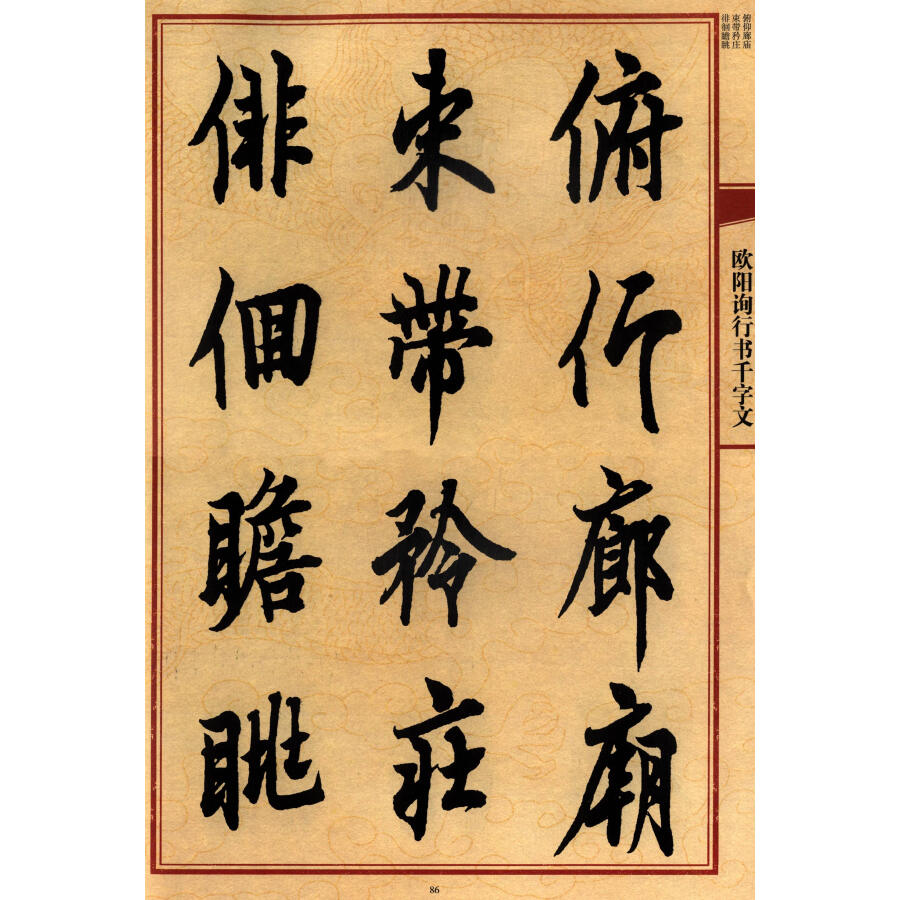 俯仰廊庙
束带矜庄
徘徊瞻眺
欧阳询行书千字文
俯仰廊廟
束帶矜莊
俳佪瞻眺
86